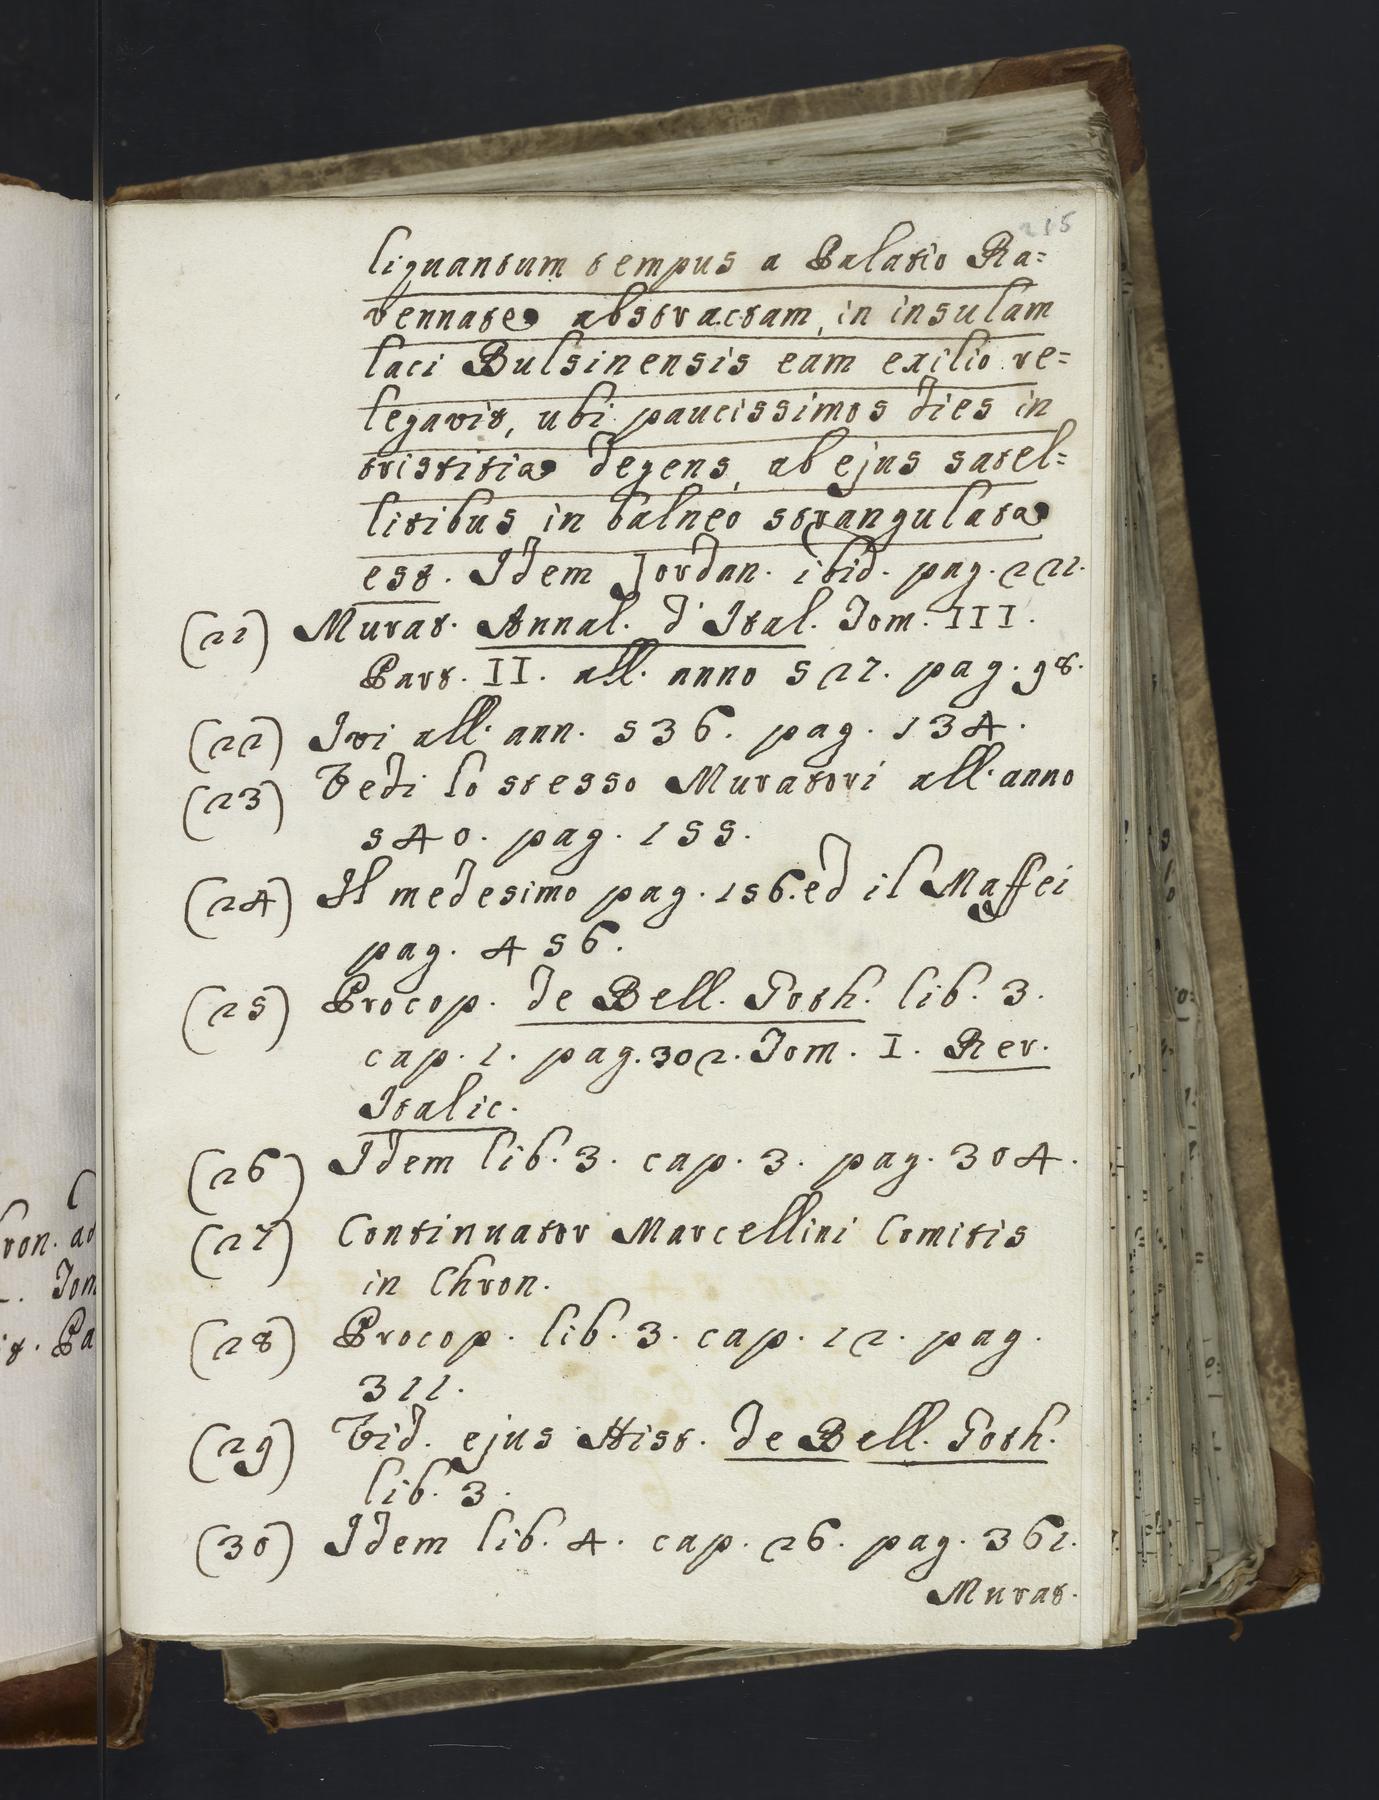 215
liquantum tempus a Palatio Ra=
vennate abstractam, in insulam
laci Bulsinensis eam exilio re=
legavit, ubi paucissimos dies in
tristitia degens, ab ejus satel=
litibus in balneo strangulata
est. Idem Jordan. ibid. pag. 222.
(21) Murat. Annal. d'Ital. Tom. III.
Part. II. all. anno 527. pag. 98.
(22) Ivi all. ann. 536. pag. 134.
(23) Vedi lo stesso Muratori all. anno
540. pag. 155.
(24) Il medesimo pag. 156. ed il Maffei
pag. 456.
(25) Procop. de Bell. Goth. lib. 3.
cap. 1. pag. 302. Tom. I. Rer.
Italic.
(26) Idem lib. 3. cap. 3. pag. 304.
(27) Continuator Marcellini Comitis
in Chron.
(28) Procop. lib. 3. cap. 12. pag.
311.
(29) Vid. ejus Hist. de Bell. Goth.
lib. 3.
(30) Idem lib. 4. cap. 26. pag. 361.
Murat.